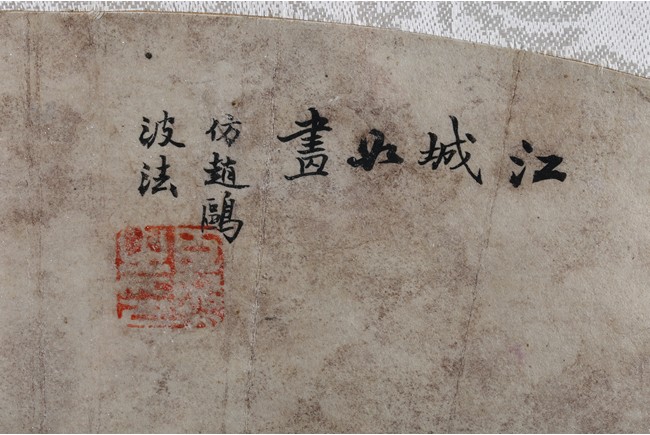 江城如畫
仿趙鷗
波法